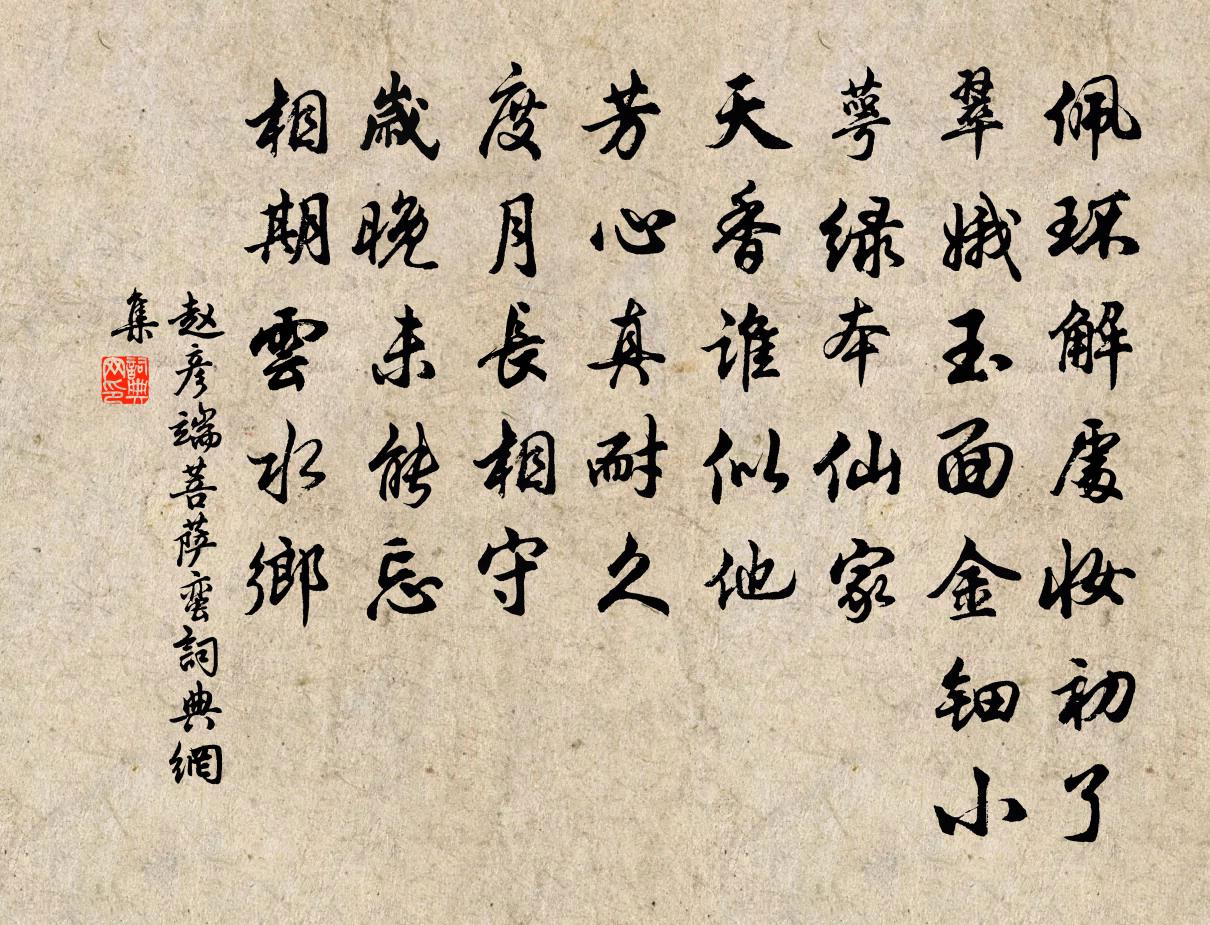 佩环解處妝初了
翠娥玉面金钿小
萼绿本仙家
天香谁似他
芳心真耐久
度月長相守
歲晚未能忘
相期雲水鄉
赵彦端菩萨蛮詞典網
集
詞典网印